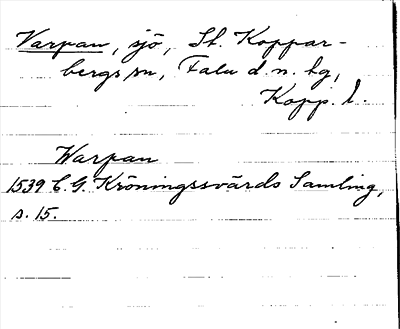 Varpan, sjö, St. Koppar-
bergs sn, Falu d. n. hg,
Kopp. l.
Warpan
1539 C. G. Kröningssvärds Samling,
s. 15.